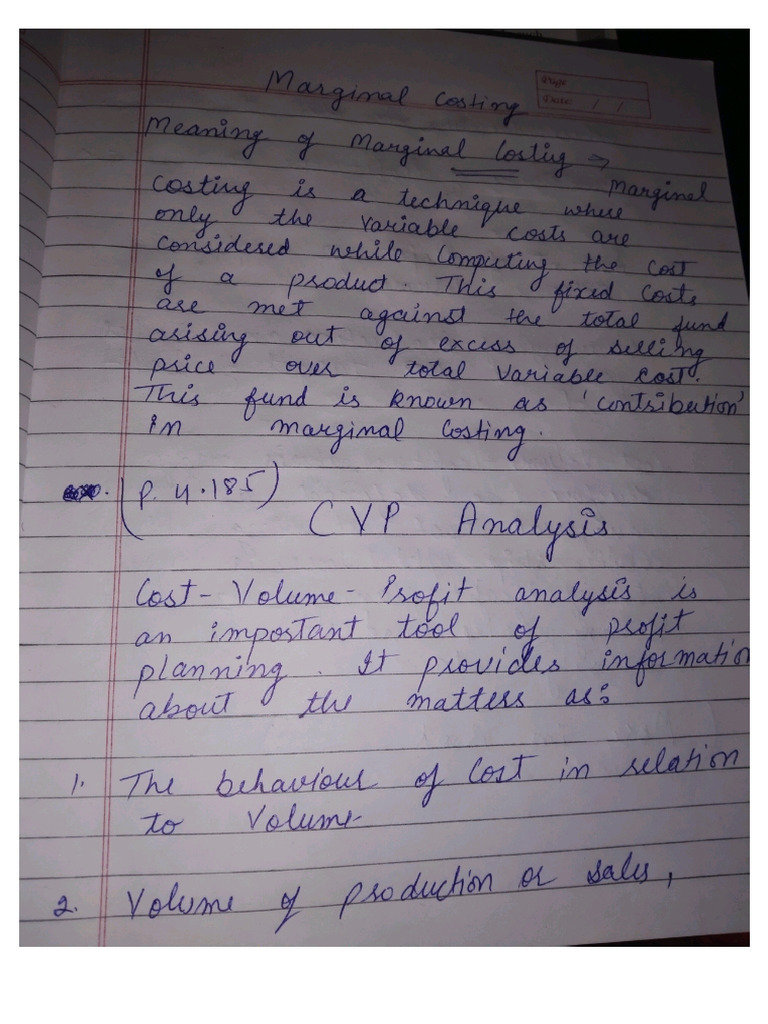 Marginal Costing
Page
Date / /
Meaning of Marginal Costing →
Marginal
Costing is a technique where
only the variable costs are
considered while Computing the cost
of a product. This fixed costs
are met against the total fund
arising out of excess of selling
price over total variable cost.
This fund is known as 'contribution'
in marginal Costing.
(P. 4.185)
CVP Analysis
Cost-Volume-Profit analysis is
an important tool of profit
planning. It provides information
about the matters as:
1. The behaviour of Cost in relation
to Volume
2. Volume of production or sales,